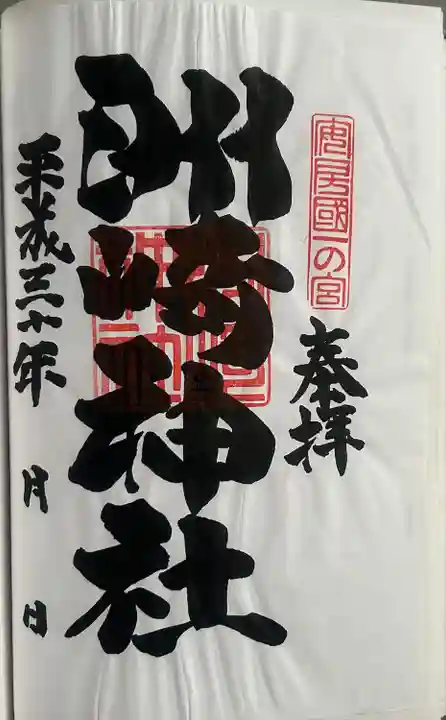 安房國一の宮
奉拝
洲崎神社
平成三十年 月 日